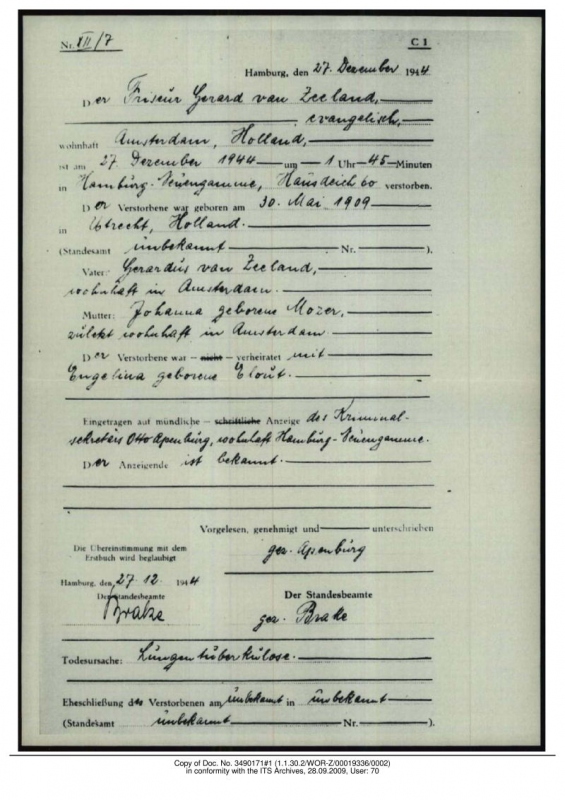 Nr. XII/7 C 1
Hamburg, den 27. Dezember 1944
Der Friseur Gerard van Zeeland,
evangelisch,
wohnhaft Amsterdam, Holland,
ist am 27. Dezember 1944 um 1 Uhr 45 Minuten
in Hamburg-Neuengamme, Hausdeich 60 verstorben.
Der Verstorbene war geboren am 30. Mai 1909
in Utrecht, Holland.
(Standesamt unbekannt Nr. ).
Vater: Gerardus van Zeeland,
wohnhaft in Amsterdam.
Mutter: Johanna geborene Mozer,
zuletzt wohnhaft in Amsterdam.
Der Verstorbene war – nicht – verheiratet mit
Engelina geborene Elout.
Eingetragen auf mündliche – schriftliche Anzeige des Kriminal-
sekretärs Otto Apenburg, wohnhaft Hamburg-Neuengamme.
Der Anzeigende ist bekannt.
Vorgelesen, genehmigt und unterschrieben
gez. Apenburg
Die Übereinstimmung mit dem
Erstbuch wird beglaubigt
Hamburg, den 27. 12. 1944
Der Standesbeamte
Brake
Der Standesbeamte
gez. Brake
Todesursache: Lungentuberkulose.
Eheschließung des Verstorbenen am unbekannt in unbekannt
(Standesamt unbekannt Nr. ).
Copy of Doc. No. 3490171#1 (1.1.30.2/WOR-Z/00019336/0002)
in conformity with the ITS Archives, 28.09.2009, User: 70